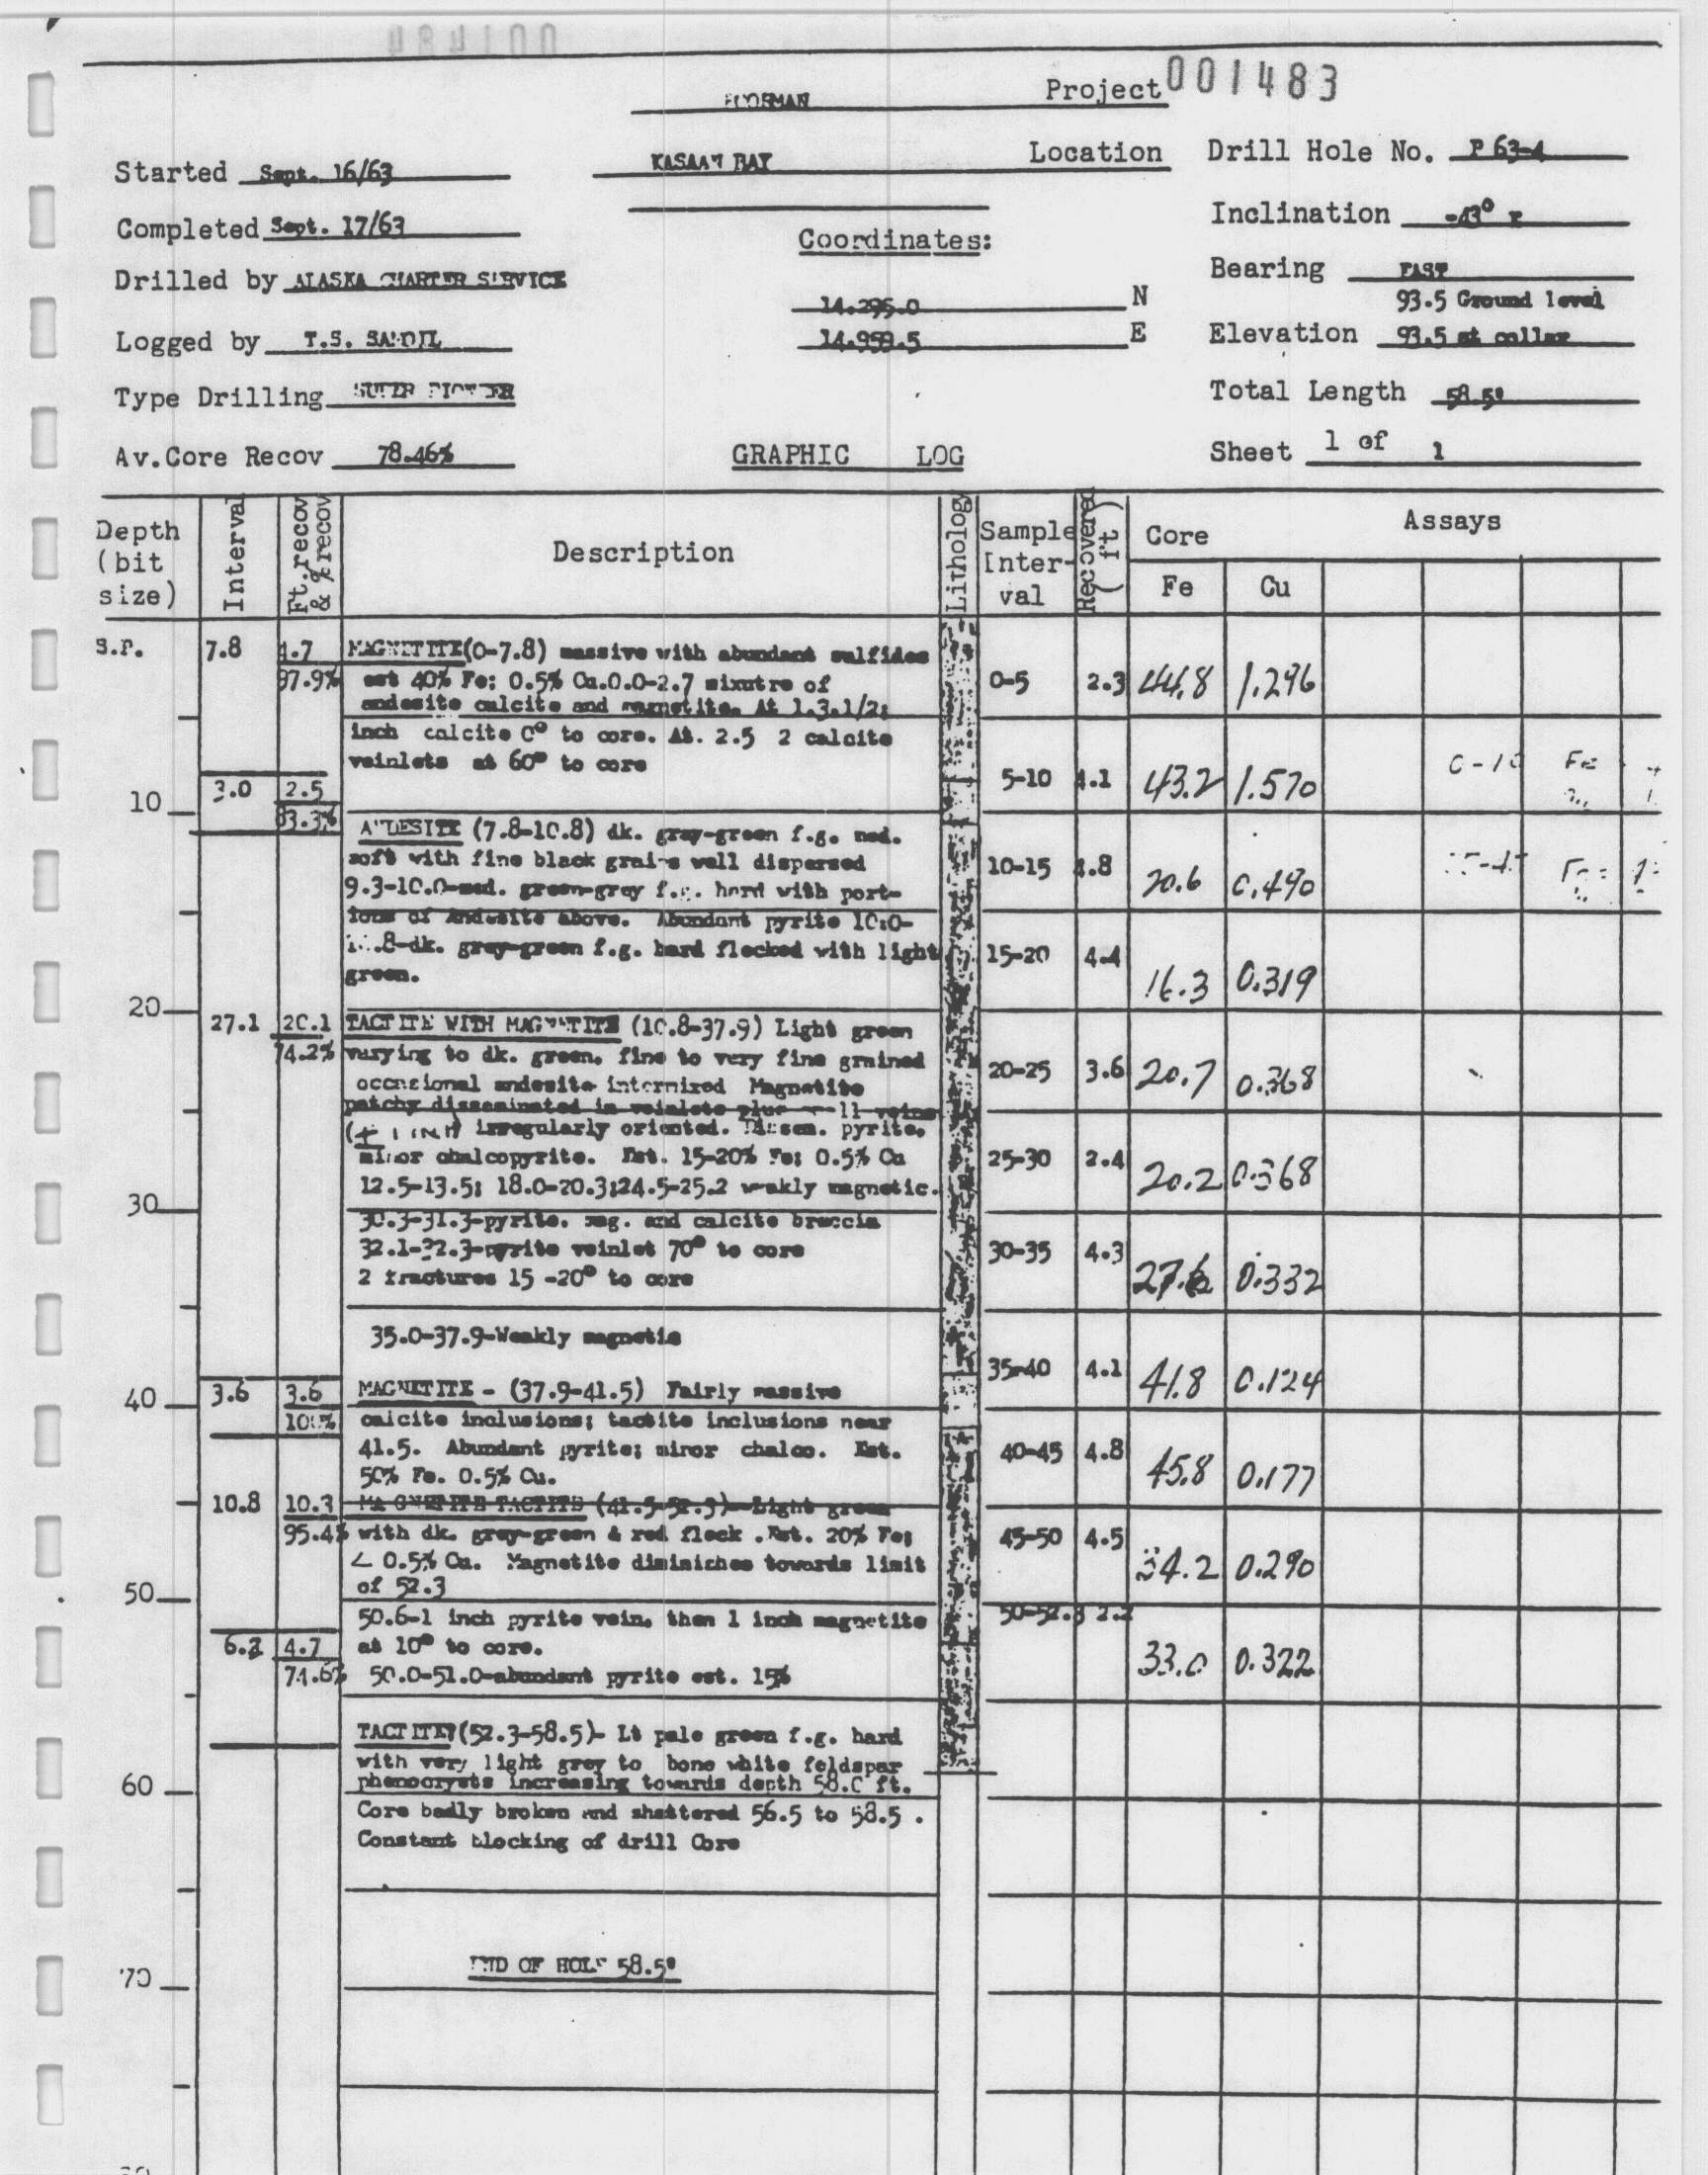 Project 001483
KASAAN BAY Location Drill Hole No. P 63-4
Started Sept. 16/63
Inclination -43°
Completed Sept. 17/63
Coordinates:
Bearing EAST
Drilled by ALASKA CHARTER SERVICE
93.5 Ground level
14.295.0 N
Elevation 93.5 at collar
14.959.5 E
Logged by T.S.
Total Length 58.5'
Type Drilling
Av.Core Recov 78.46% GRAPHIC LOG Sheet 1 of 1
Depth (bit size) Interval Ft.recov & % recov Description Lithology Sample Inter-val Recovered (ft) Core Assays
Fe Cu
S.P. 7.8 4.7 MAGNETITE(0-7.8) massive with abundant sulfides
97.9% est 40% Fe; 0.5% Cu.0.0-2.7 mixutre of 0-5 2.3 44.8 1.296
andesite calcite and magnetite. At 1.3.1/2;
inch calcite 0° to core. At. 2.5 2 calcite
veinlets at 60° to core 5-10 4.1 43.2 1.570
3.0 2.5
10 83.3%
ANDESITE (7.8-10.8) dk. gray-green f.g. med.
soft with fine black grains well dispersed 10-15 4.8 20.6 0.490
9.3-10.0-med. green-grey f.g. hard with port-
ions of Andesite above. Abundant pyrite 10:0-
.8-dk. grey-green f.g. hard flecked with light 15-20 4.4 16.3 0.319
green.
20
27.1 20.1 TACTITE WITH MAGNETITE (10.8-37.9) Light green
74.2% varying to dk. green, fine to very fine grained
occasional andesite intermixed Magnetite 20-25 3.6 20.7 0.368
patchy disseminated in veinlets plus small veins
(± 1 inch) irregularly oriented. Dissem. pyrite,
minor chalcopyrite. Est. 15-20% Fe; 0.5% Cu 25-30 2.4 20.2 0.368
12.5-13.5; 18.0-20.3;24.5-25.2 weakly magnetic.
30
30.3-31.3-pyrite. mag. and calcite breccia
32.1-32.3-pyrite veinlet 70° to core 30-35 4.3 27.6 0.332
2 fractures 15 -20° to core
35.0-37.9-Weakly magnetic
35-40 4.1 41.8 0.124
40 3.6 3.6 MAGNETITE - (37.9-41.5) Fairly massive
100% calcite inclusions; tactite inclusions near
41.5. Abundant pyrite; minor chalco. Est. 40-45 4.8 45.8 0.177
50% Fe. 0.5% Cu.
10.8 10.3 MAGNETITE TACTITE (41.5-52.3)-Light green
95.4% with dk. grey-green & red fleck .Est. 20% Fe; 45-50 4.5 34.2 0.290
< 0.5% Cu. Magnetite diminiches towards limit
of 52.3
50
50.6-1 inch pyrite vein, then 1 inch magnetite 50-52.3 2.2 33.0 0.322
6.2 4.7 at 10° to core.
74.6% 50.0-51.0-abundant pyrite est. 15%
TACTITE?(52.3-58.5)- Lt pale green f.g. hard
with very light grey to bone white feldspar
60 phenocrysts increasing towards depth 58.0 ft.
Core badly broken and shattered 56.5 to 58.5 .
Constant blocking of drill Core
END OF HOLE 58.5'
70